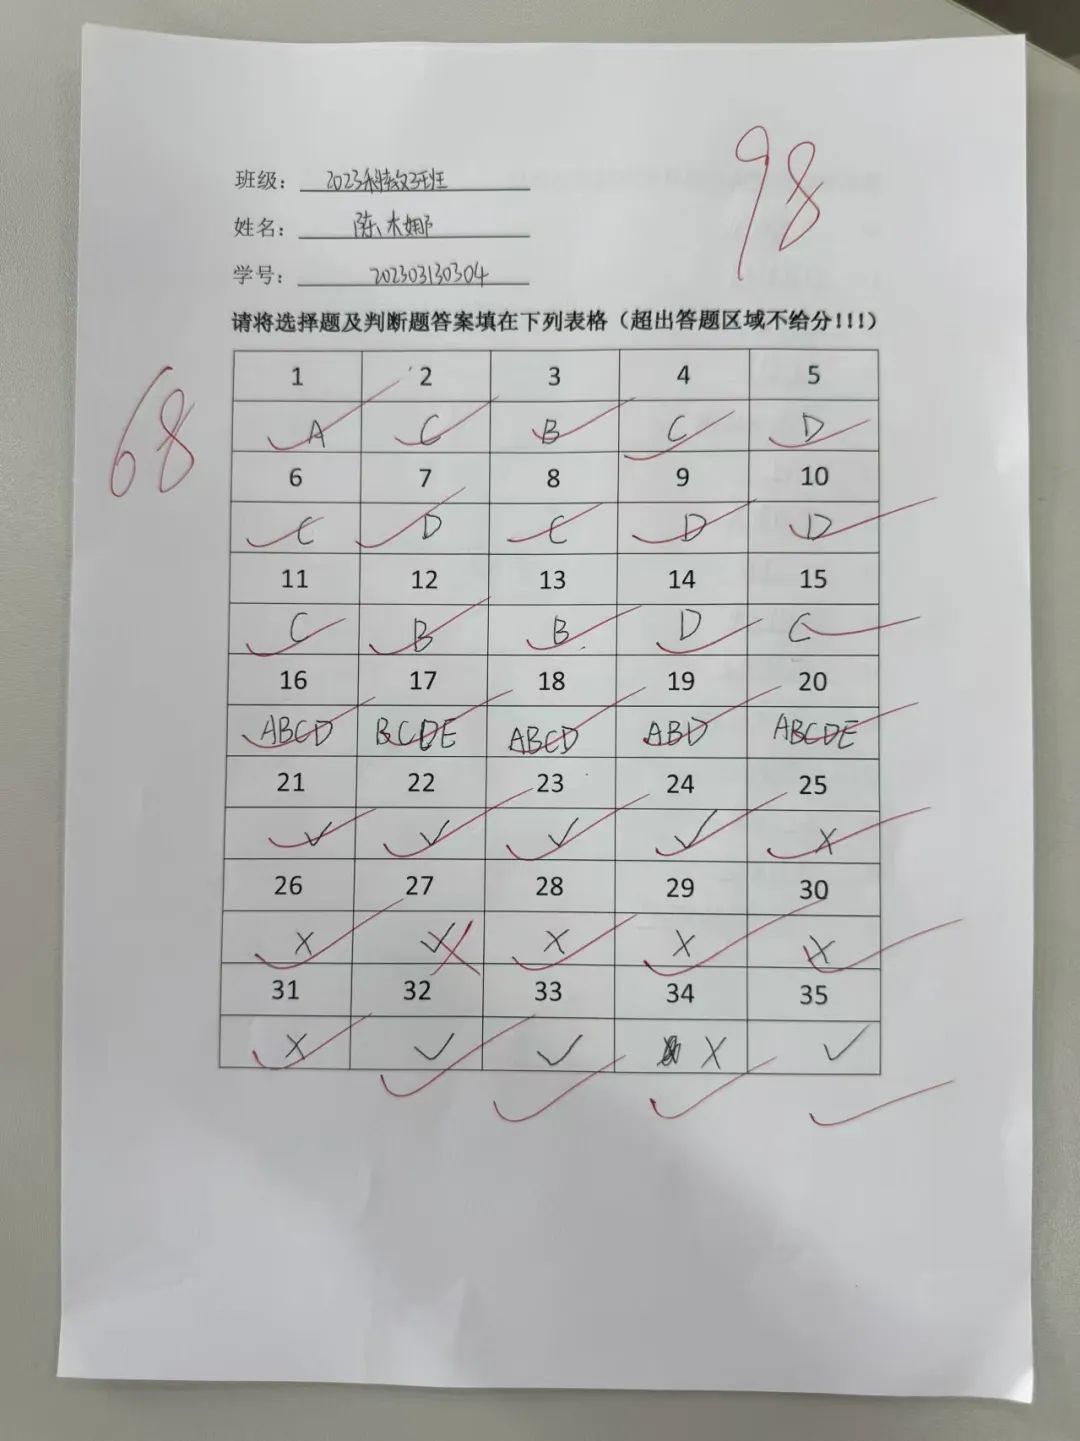 98
班级：2023科教3班
姓名：陈木娜
学号：202303130304
请将选择题及判断题答案填在下列表格（超出答题区域不给分!!!）
68
1 2 3 4 5
A C B C D
6 7 8 9 10
C D C D D
11 12 13 14 15
C B B D C
16 17 18 19 20
ABCD BCDE ABCD ABD ABCDE
21 22 23 24 25
✓ ✓ ✓ ✓ ×
26 27 28 29 30
× ✓ × × ×
31 32 33 34 35
× ✓ ✓ × ✓